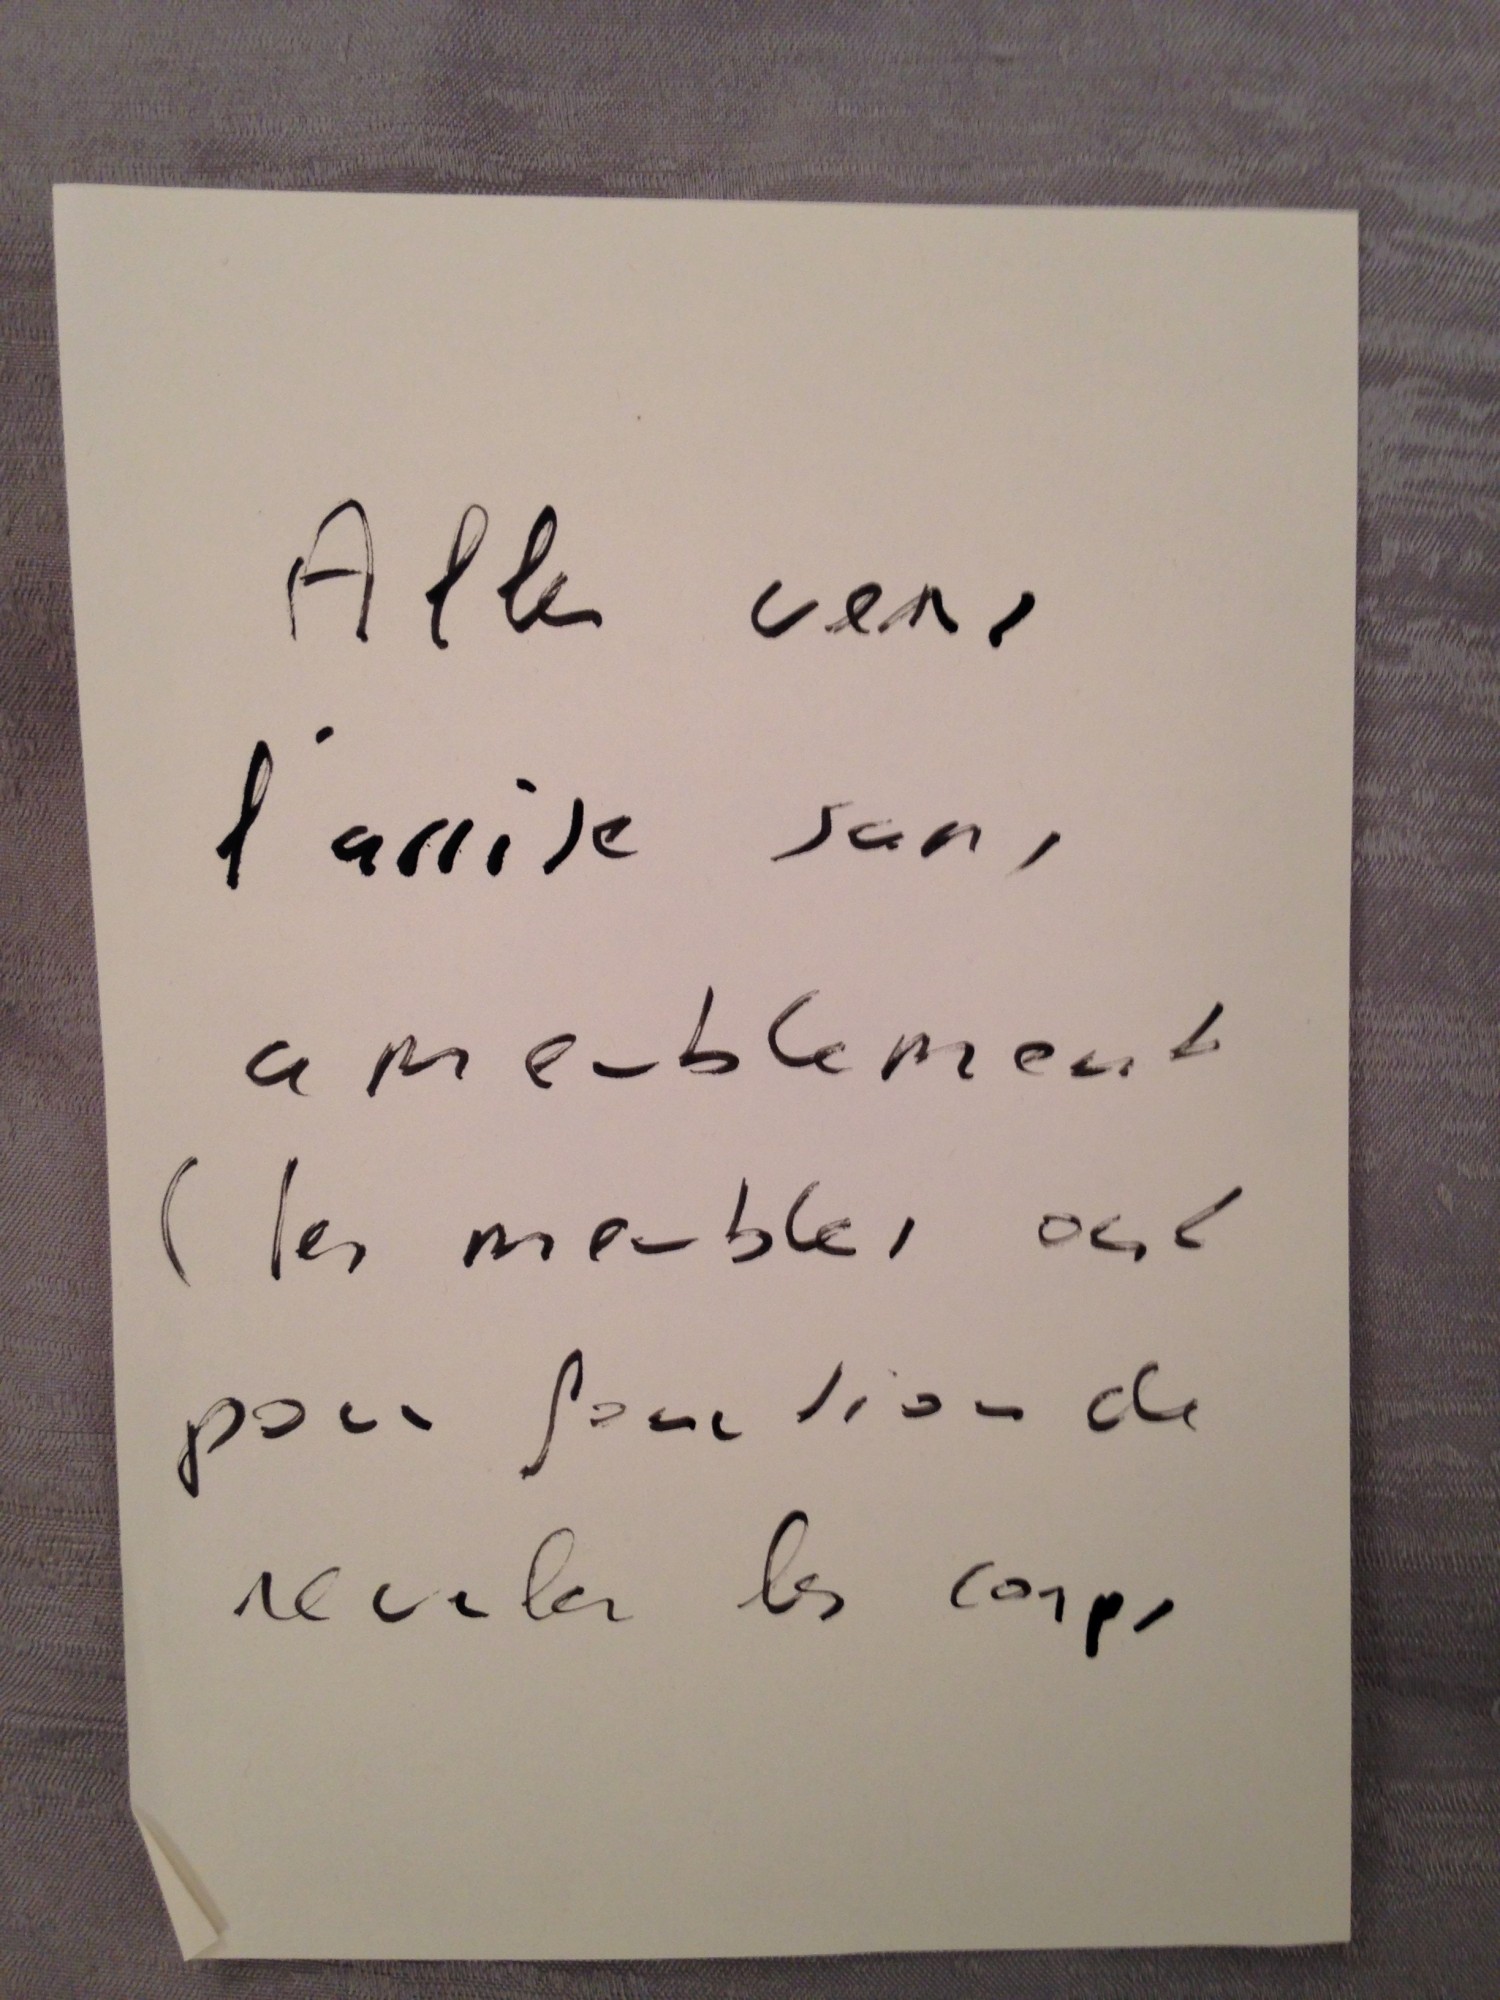 Aller vers
l'assise sans
ameublement
(les meubles ont
pour fonction de
reculer les corps